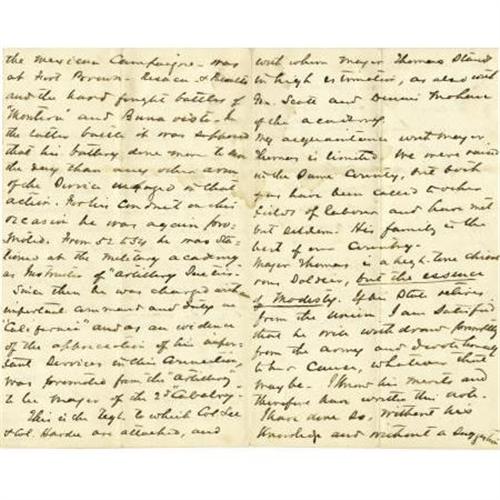 the Mexican Campaigne - was
at Fort Brown - Resaca -
and the hard fought battles of
"Monterey" and Buna vista - In
the latter battle it was supposed
that his battery done more to
the day than any other arm
of the Service engaged in that
action. For his Conduct on this
occasion he was again pro-
moted. From 52 to 54 he was sta-
tioned at the military academy
as Instructor of "artillery Tactics.
Since then he was charged with
important command and duty in
California" and as an evidence
of the appreciation of his impor-
tant Services in this Connection,
was promoted from the "artillery"
to be Major of the 2d "Cabalry".
This is the Regt to which Col Lee
& Col. Hardee are attached, and
with whom Major Thomas Stand
in high estimation, as also with
Genl Scott and Dennis Mahan
of the academy.
My acquaintance with Major
Thomas is limited. We were raised
in the Same County, but both
have been called to other
fields of labour and have met
but seldom. His family is the
best of our Country.
Major Thomas is a high-tone chival
rous Soldier, but the essence
of Modesty. If his State retires
from the Union I am Satisfied
that he will withdraw promptly
from the army and
to her Cause, whatever that
may be. I know his merits and
therefore have written this note.
I have done so, without his
Knowledge and without a Suggestion